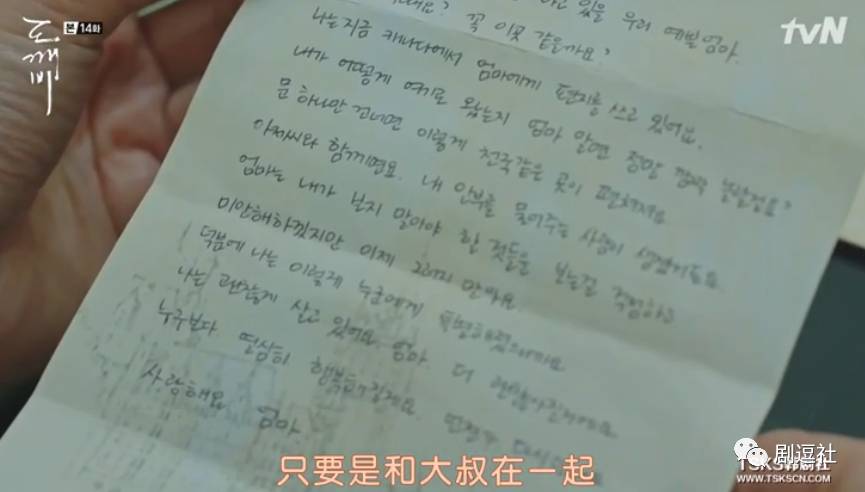 도깨비
본 14화
tvN
있을 우리 예쁠 엄마.
꼭 이곳 같은가요?
나는 지금 캐나다에서 엄마에게 편지를 쓰고 있어요.
내가 어떻게 여기로 왔는지 엄마 알면 정말 깜짝 놀랄걸요?
문 하나만 건너면 이렇게 천국같은 곳이 펼쳐져요
아저씨와 함께면요. 내 안부를 물어주는 사람이 생겼거든요.
엄마는 내가 보지 말아야 할 것들을 보는걸 걱정하고
미안해하겠지만 이제 그러지 말아요.
덕분에 나는 이렇게 누군에게
나는 괜찮게 살고 있어요 엄마. 더
누구보다. 열심히 행복해질게요.
사랑해요 엄마.
只要是和大叔在一起
剧逗社
TSKS韩剧社
WWW.TSKSCN.COM